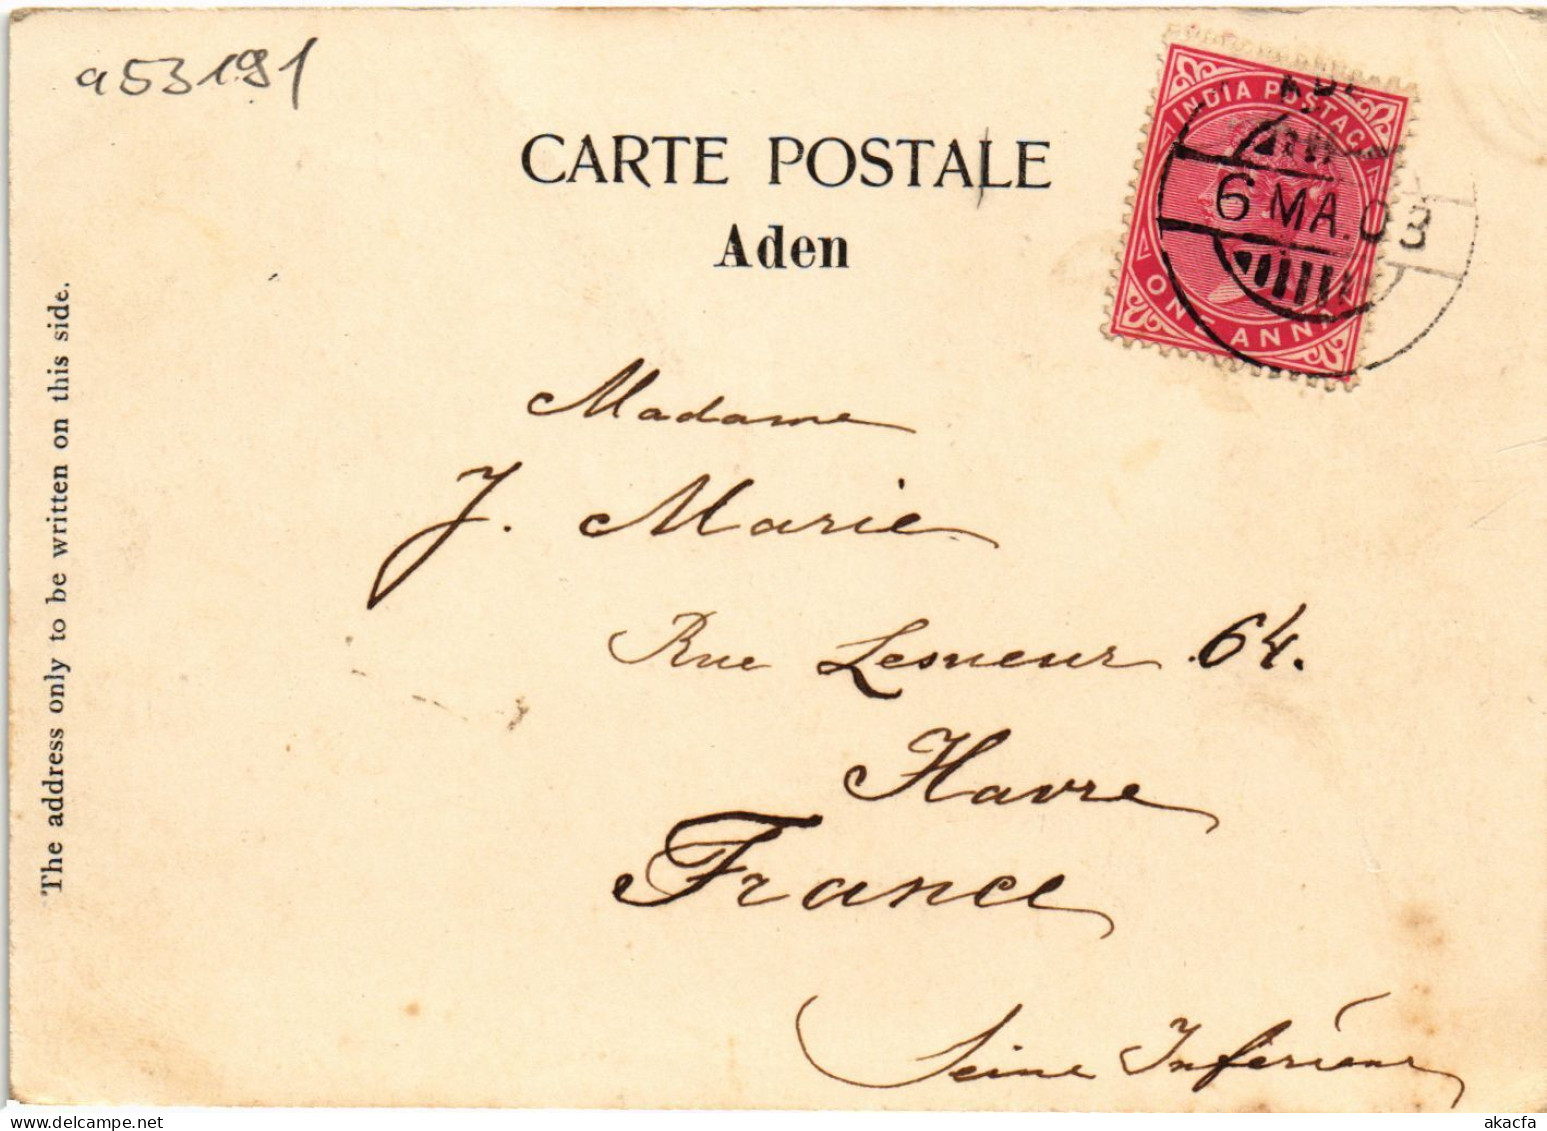 a53191
CARTE POSTALE
Aden
INDIA POSTAGE
6 MA. 03
ONE ANN
The address only to be written on this side.
Madame
J. Marie
Rue Lesueur 64.
Havre
France
Seine Inférieure
akacfa